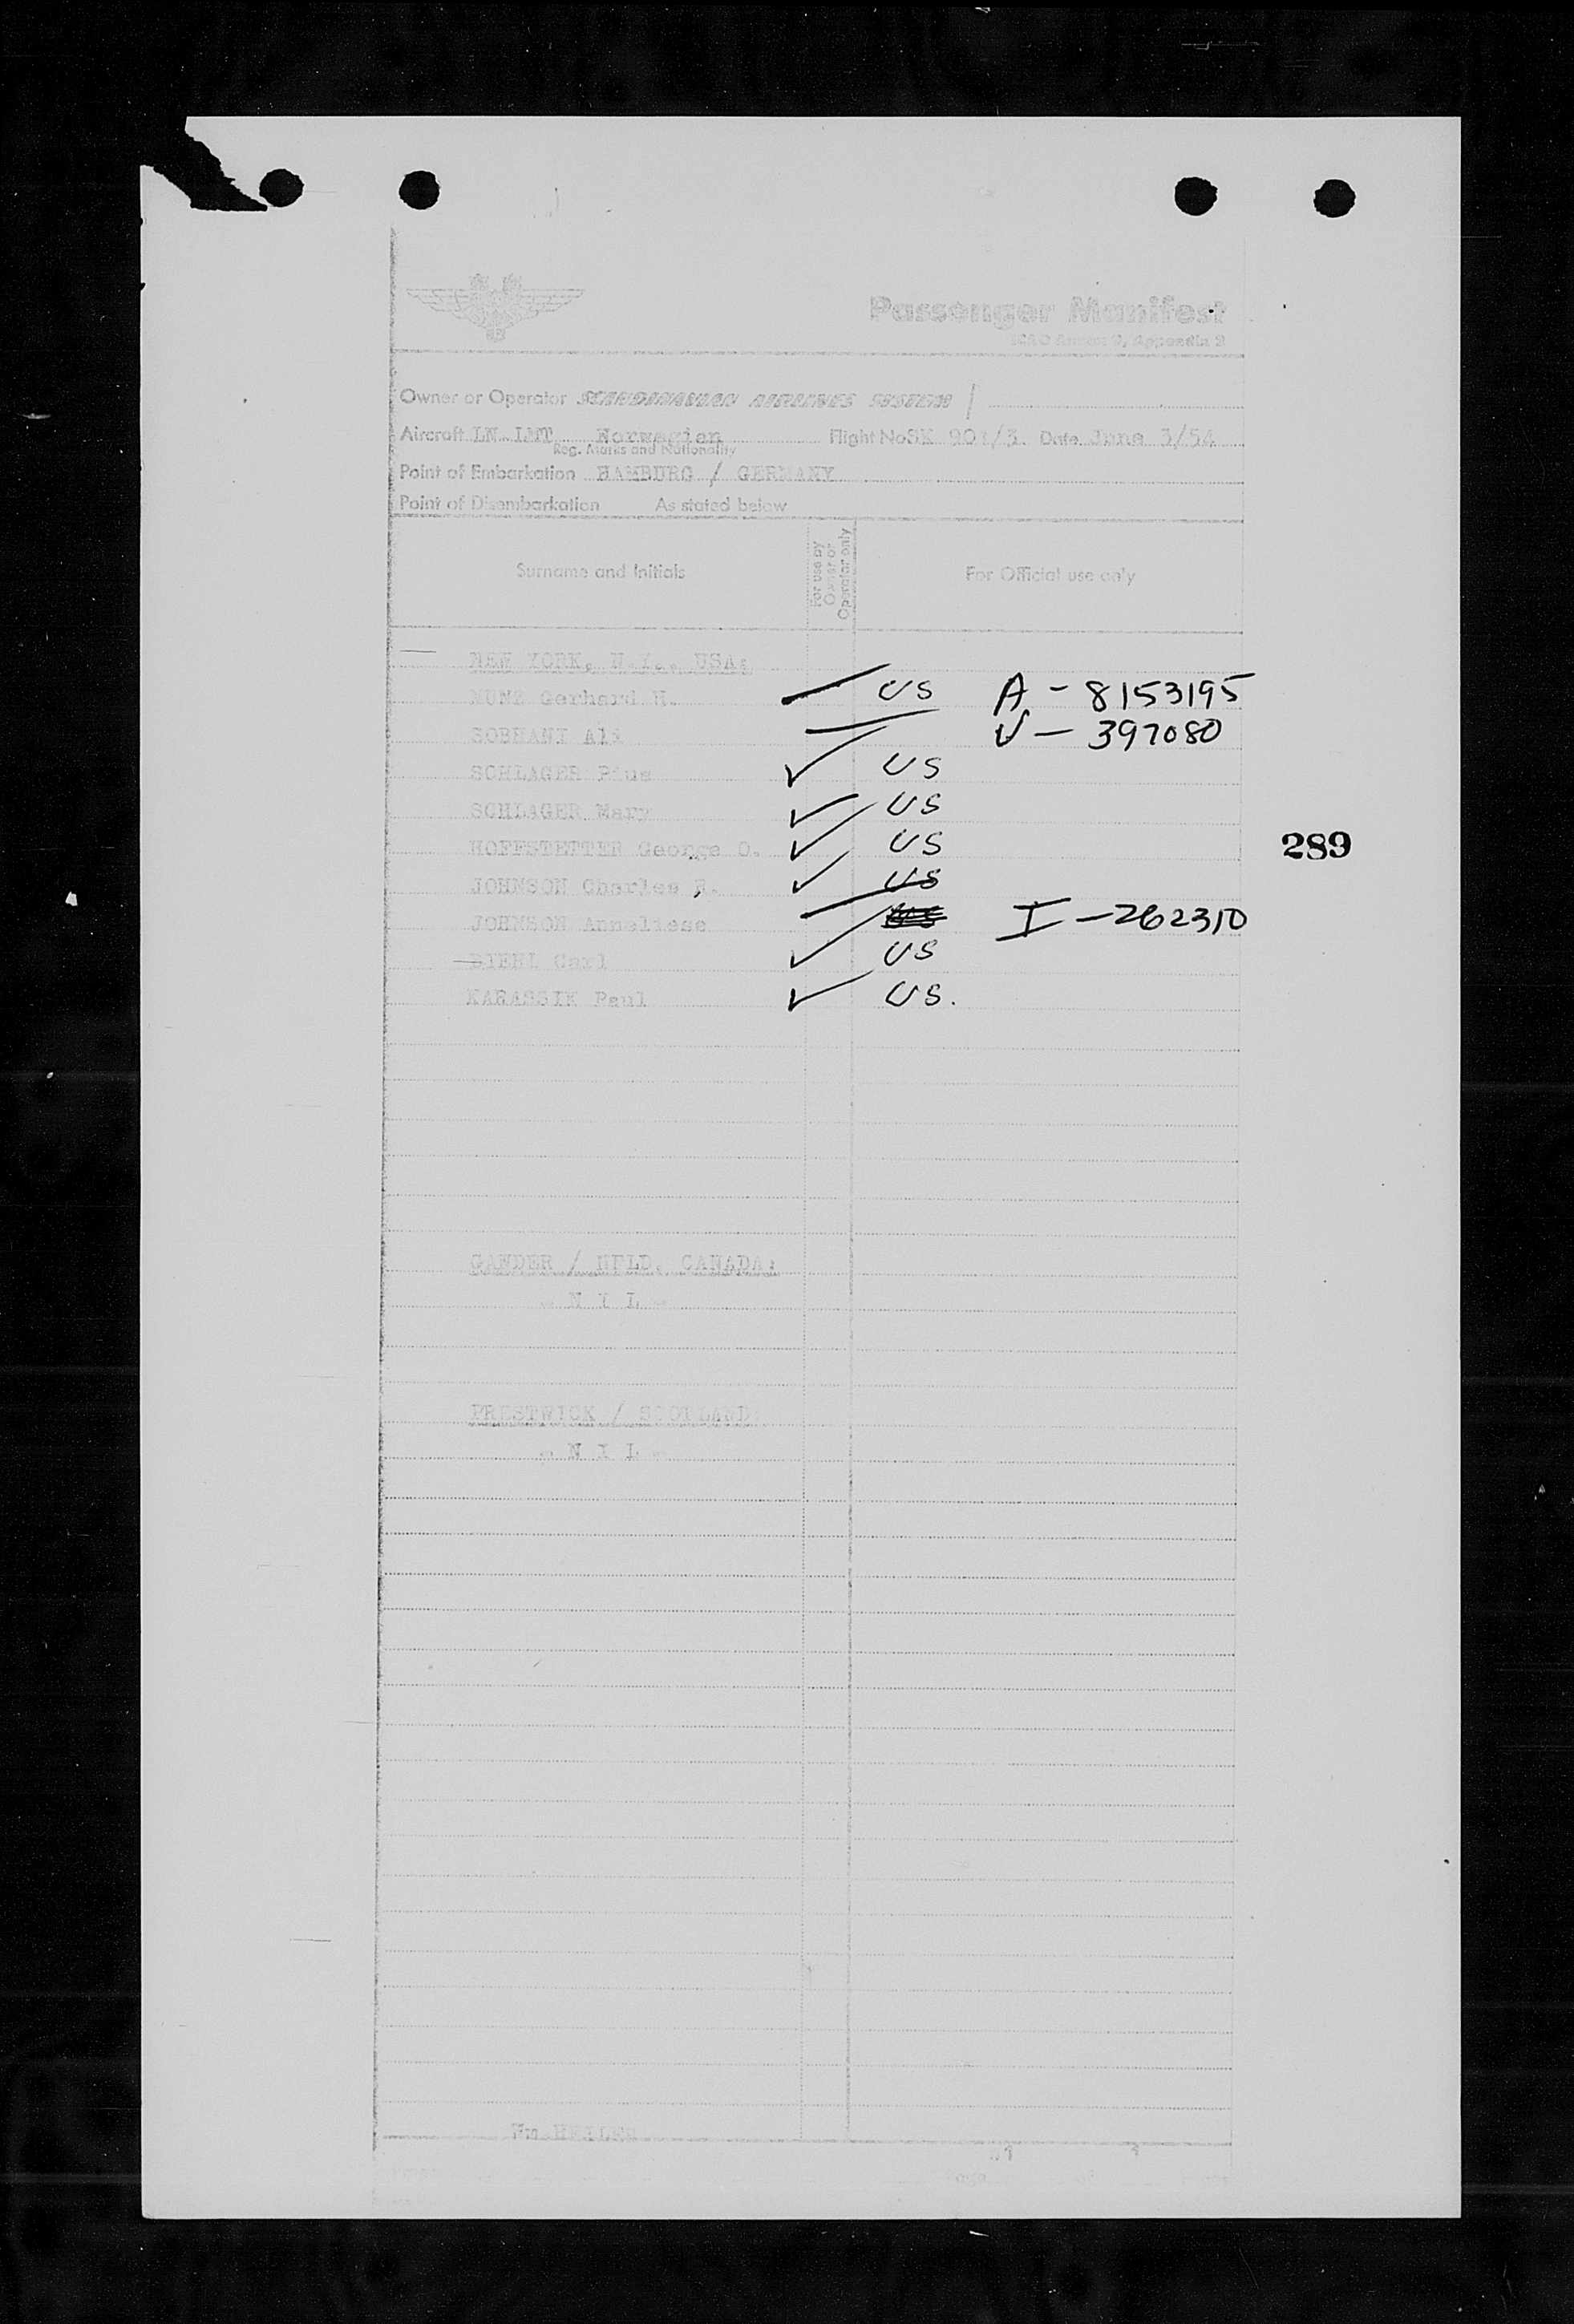 Passenger Manifest
ICAO Annex 9, Appendix 3
Owner or Operator SCANDINAVIAN AIRLINES SYSTEM /
Aircraft LN LMT Norwegian Flight No SK 901/3 Date June 3/54
Reg. Marks and Nationality
Point of Embarkation HAMBURG / GERMANY
Point of Disembarkation As stated below
Surname and Initials For use by Owner or Operator only For Official use only
NEW YORK, N.Y., USA:
Gerhard H. US A - 8153195
SOBHANI Ali V - 397080
SCHLAGER Pius US
SCHLAGER Mary US
HOFFSTETTER George O. US
289
JOHNSON Charles R. US
JOHNSON Anneliese I - 262310
DIEHL Carl US
KARASSIK Paul US.
GANDER / NFLD. CANADA:
- N I L -
PRESTWICK / SCOTLAND:
- N I L -
1 1